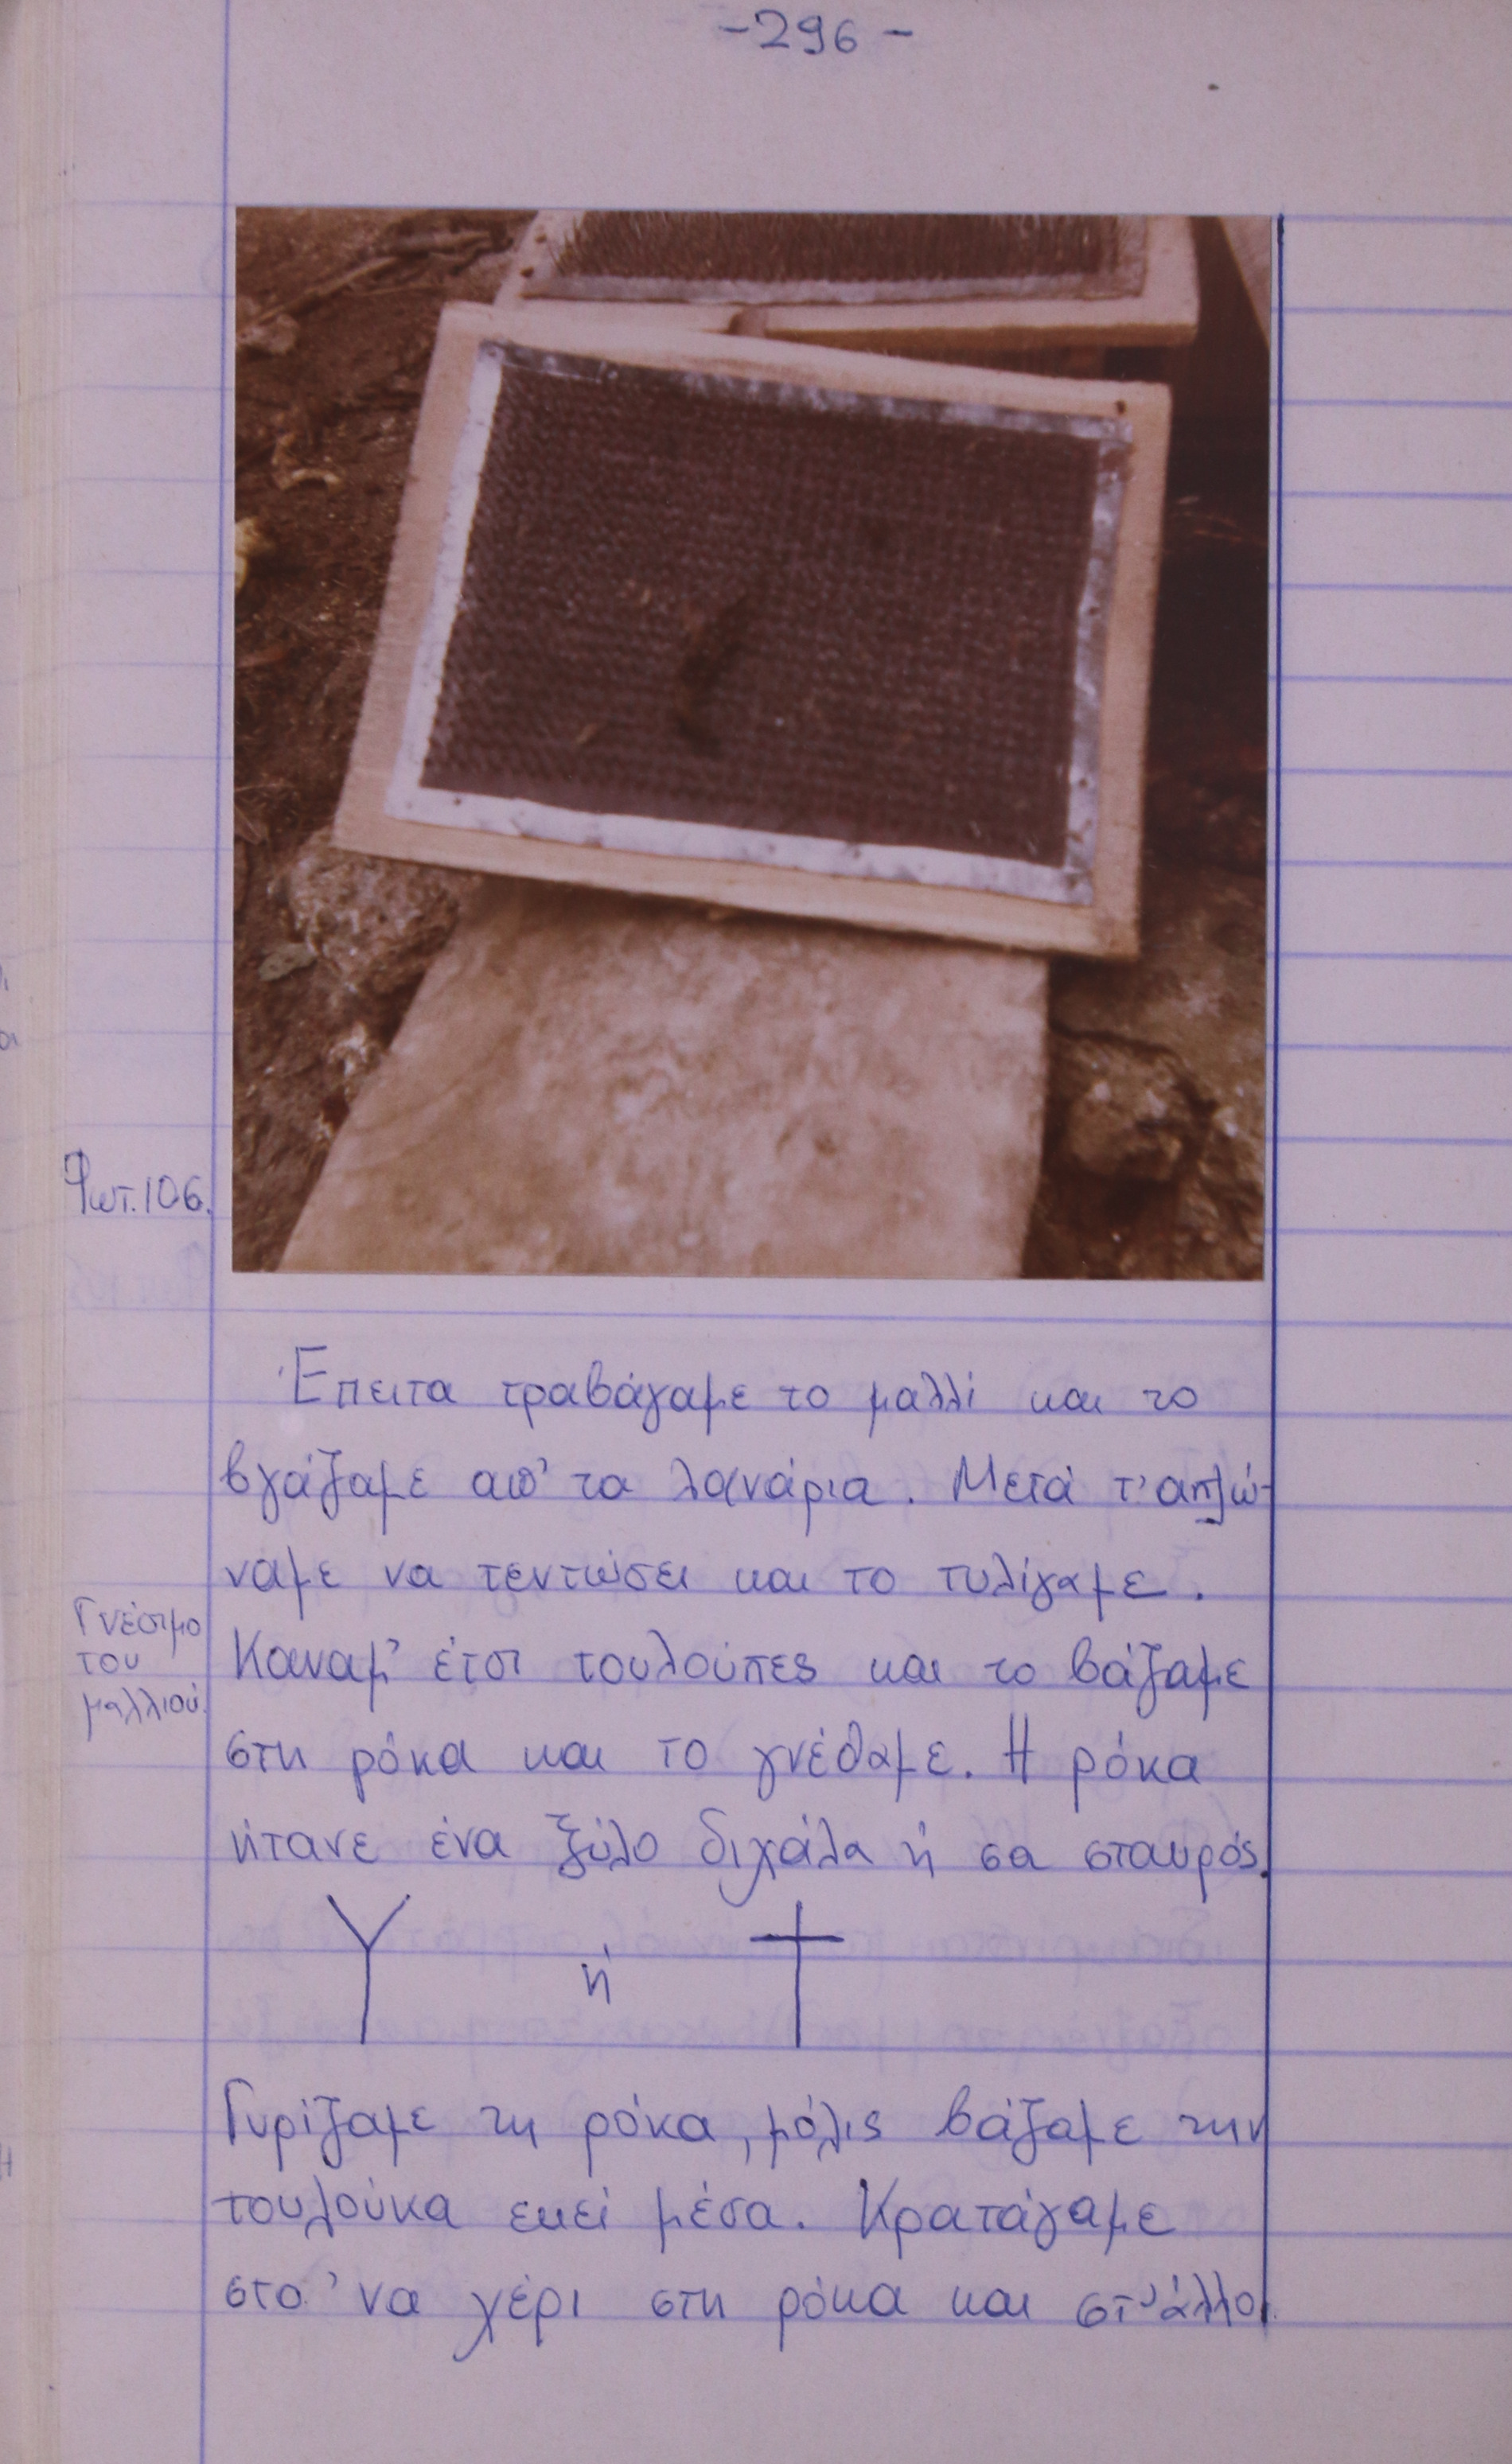 -296-
Φωτ.106.
Έπειτα τραβάγαμε το μαλλί και το
βγάζαμε απ' τα λανάρια. Μετά τ' απλώ-
ναμε να τεντώσει και το τυλίγαμε.
Γνέσιμο
του
μαλλιού.
Κάναμ' έτσι τουλούπες και το βάζαμε
στη ρόκα και το γνέθαμε. Η ρόκα
ήτανε ένα ξύλο διχάλα ή σα σταυρός.
ή
Γυρίζαμε τη ρόκα, μόλις βάζαμε την
τουλούκα εκεί μέσα. Κρατάγαμε
στο 'να χέρι στη ρόκα και στ' άλλο